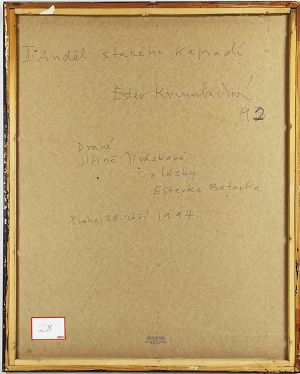 II. Anděl starého kapradí
Ester Krumbachová
92
Drahé
Jiřině Jiráskové
z lásky
Esterka Baterka
Praha, 28. září 1994.
28